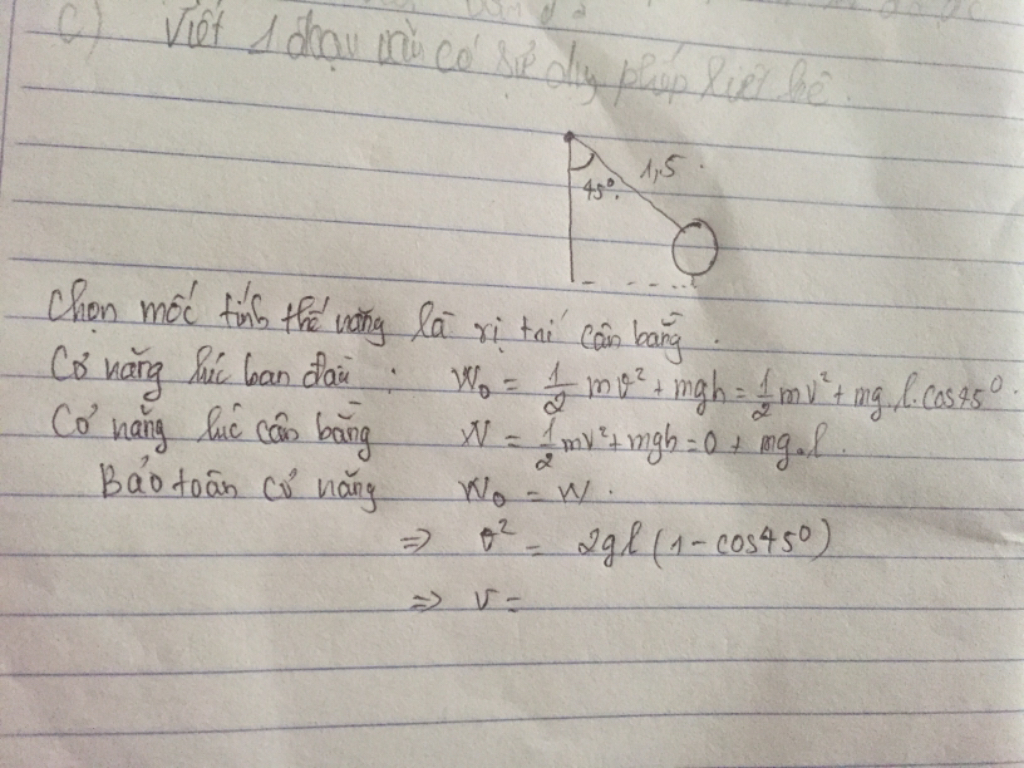 c) Viết 1 đoạn có sử dụng phép liệt kê.
1,5
45°
Chọn mốc tính thế năng là vị trí cân bằng.
Cơ năng lúc ban đầu: W₀ = 1/2 mv² + mgh = 1/2 mv² + mg.l.cos45°
Cơ năng lúc cân bằng W = 1/2 mv² + mgh = 0 + mg.l.
Bảo toàn cơ năng W₀ = W.
⇒ v² = 2gl(1-cos45°)
⇒ v =